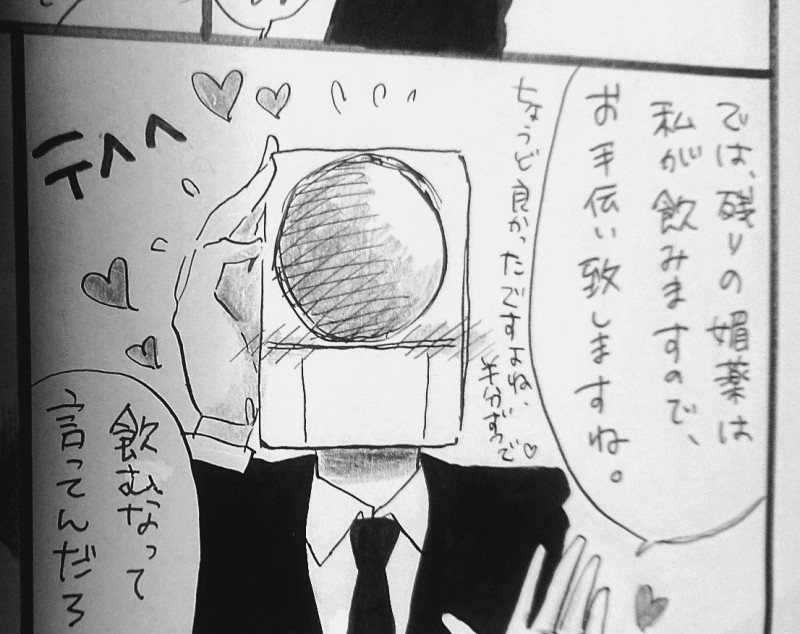 では、残りの媚薬は
私が飲みますので、
お手伝い致しますね。
ちょうど良かったですよね、
半分ずつで♡
テヘヘ
飲むなって
言ってんだろ